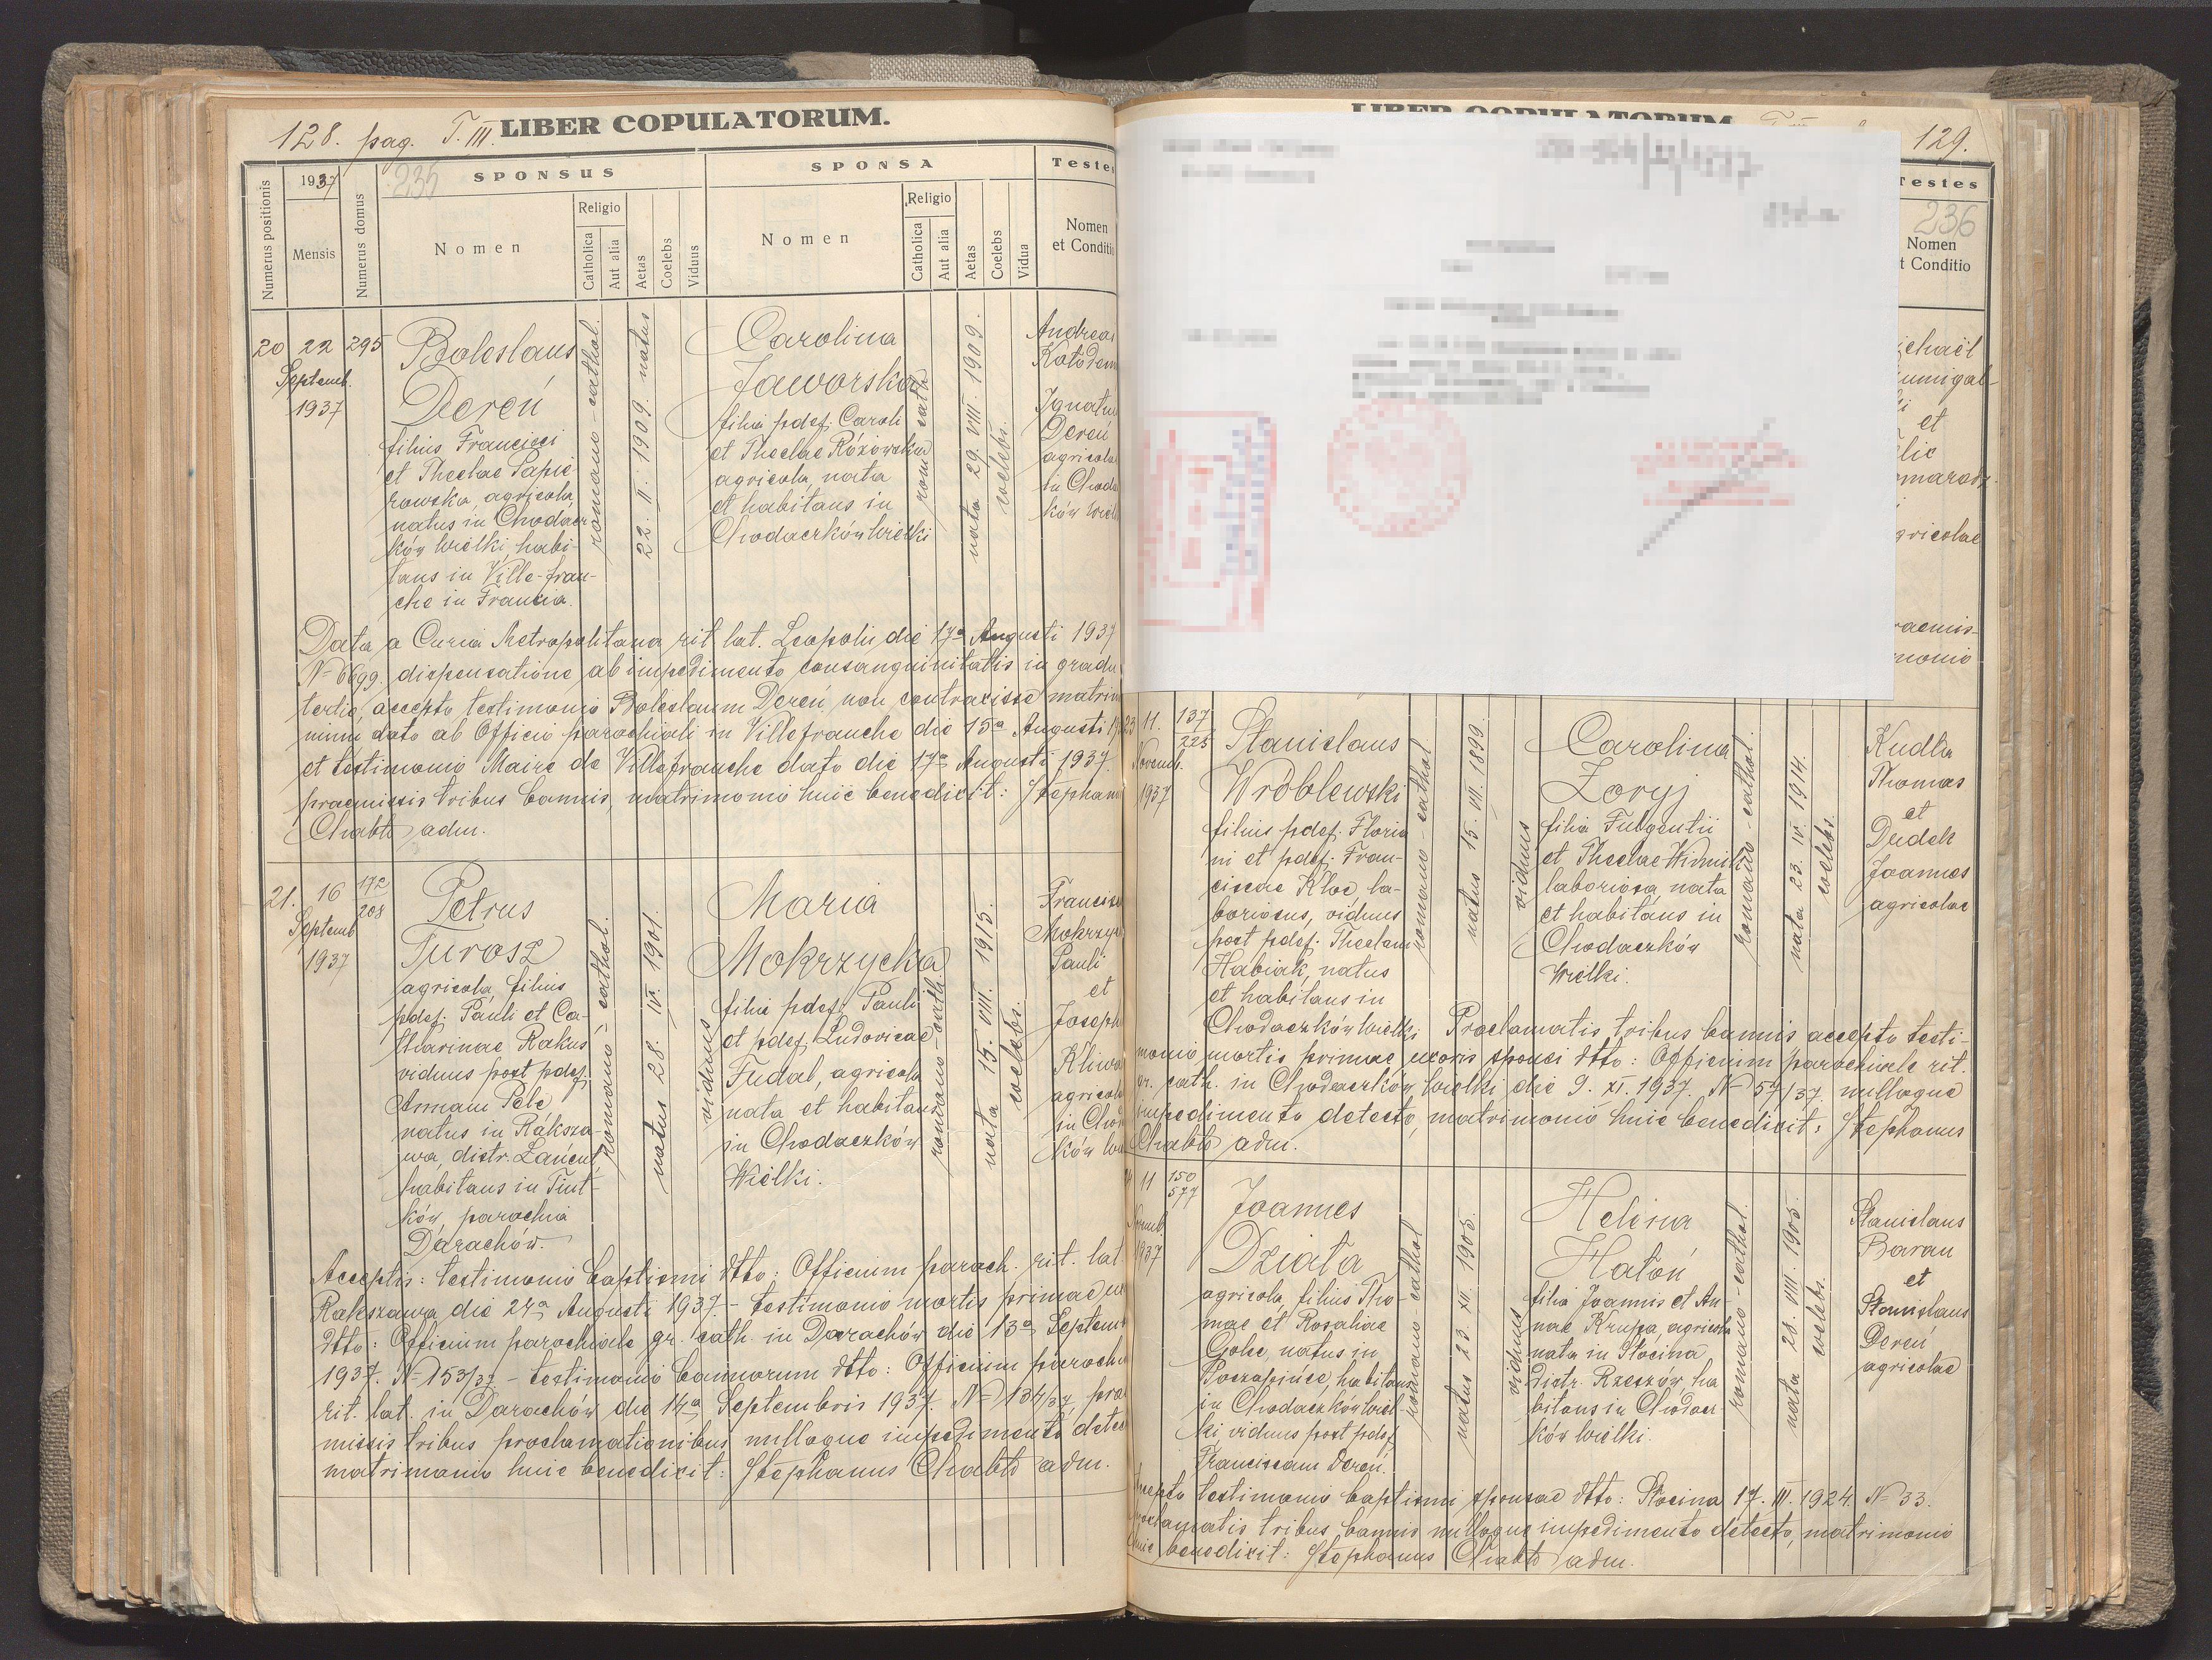 128. pag. T. III. LIBER COPULATORUM.
Numerus positionis
1937
Mensis
Numerus domus
235
SPONSUS
Nomen
Religio
Catholica
Aut alia
Aetas
Coelebs
Viduus
SPONSA
Nomen
Religio
Catholica
Aut alia
Aetas
Coelebs
Vidua
Testes
Nomen
et Conditio
20 22 295
Septemb.
1937
Boleslaus
Dereń
filius Francisci
et Theclae Papie-
rowska, agricola,
natus in Chodacz-
ków Wielki, habi-
tans in Ville-fran-
che in Francia.
romano-cathol.
22. II. 1909. natus
Carolina
Jaworska
filia pdef. Caroli
et Theclae Różowska
agricola, nata
et habitans in
Chodaczków Wielki
rom cath
nata 29. VIII. 1909.
coelebs.
Andreas
Ignatius
Dereń
agricolae
in Choda
ków Wiel
Data a Curia Metropolitana rit. lat. Leopoli die 17a Augusti 1937
N= 6699. dispensatione ab impedimento consanguinitatis in gradu
tertio, accepto testimonio Boleslaum Dereń non contraxisse matrim
nium dato ab Officio parochiali in Villefranche die 15a Augusti 19
et testimonio Maire de Villefranche dato die 17a Augusti 1937.
praemissis tribus bannis, matrimonio huic benedixit: Stephanus
Chabło adm.
21. 16 172
208
Septemb
1937
Petrus
Turosz
agricola, filius
pdef. Pauli et Ca-
tharinae Rakus
viduus post pdef.
Annam Pelc
natus in Raksza-
wa, distr. Łańcut,
habitans in Tiut-
ków, parochia
Darachów.
romano-cathol.
natus 28. IV. 1901.
viduus
Maria
Mokrzycka
filia pdef. Pauli
et pdef. Ludovicae
Fudal, agricola
nata et habitans
in Chodaczków
Wielki.
romano-cath
nata 15. VIII. 1915.
coelebs.
Francisc
Mokrzyc
Pauli
et
Joseph
agricolae
in Choda
ków Wiel
Acceptis: testimonio baptismi dtto: Officium paroch. rit. lat.
Rakszawa die 24a Augusti 1937 - testimonio mortis primae ux
dtto: Officium parochiale gr. cath. in Darachów die 13a Septemb
1937. N= 153/37 - testimonio bannorum dtto: Officium paroch
rit. lat. in Darachów die 14a Septembris 1937. N= 134/37, prae
missis tribus proclamationibus nulloque impedimento detec
matrimonio huic benedixit: Stephanus Chabło adm.
LIBER COPULATORUM
129.
Testes
236
Nomen
et Conditio
ichaël
et
agricolae
raemis-
monio
23 11. 137
225
Novemb.
1937
Stanislaus
Wróblewski
filius pdef. Floria
ni et pdef. Fran-
ciscae Kloc, la-
boriosus, viduus
post pdef. Theclam
Habiak, natus
et habitans in
Chodaczków Wielki
romano-cathol
natus 15. VII. 1899
viduus
Carolina
Zoryj
filia Fulgentii
et Theclae Winnik
laboriosa, nata
et habitans in
Chodaczków
Wielki.
romano-cathol.
nata 23. IV. 1914.
coelebs.
Kudła
Thomas
et
Dudek
Joannes
agricolae
Proclamatis tribus bannis accepto testi-
monio mortis primae uxoris sponsi dtto: Officium parochiale rit.
gr. cath. in Chodaczków Wielki die 9. XI. 1937. N= 57/37. nulloque
impedimento detecto, matrimonio huic benedixit: Stephanus
Chabło adm.
11 150
577
1937
Joannes
Działa
agricola, filius Tho-
mae et Rosaliae
Golec, natus in
Poczapińce, habitans
in Chodaczków Wiel-
ki, viduus post pdef.
Franciscam Dereń.
romano-cathol
natus 23. XII. 1905.
viduus
Helena
Hatoń
filia Joannis et An-
nae Krupa, agricola
nata in Słocina,
distr. Rzeszów, ha
bitans in Chodacz
ków Wielki.
romano-cathol.
nata 28. VIII. 1905.
coelebs.
Stanislaus
Baran
et
Stanislaus
Dereń
agricolae
Accepto testimonio baptismi sponsae dtto: Słocina 17. III. 1924. N= 33.
proclamatis tribus bannis nulloque impedimento detecto, matrimonio
huic benedixit: Stephanus Chabło adm.